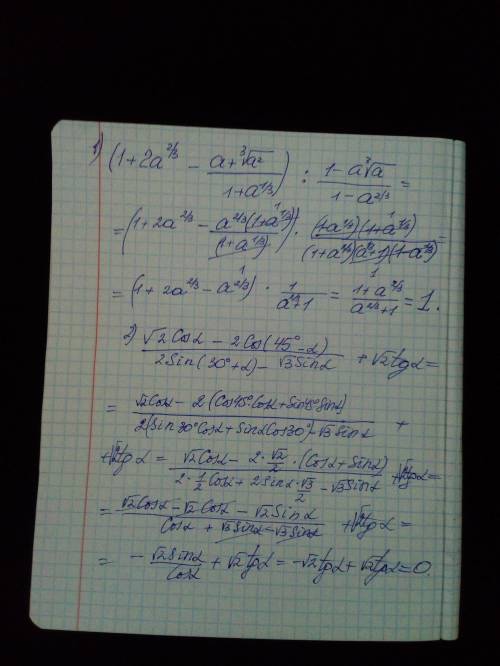 1) (1+2a^{2/3} - \frac{a+\sqrt[3]{a^2}}{1+a^{1/3}}) : \frac{1-a\sqrt[3]{a}}{1-a^{2/3}} =
= (1+2a^{2/3} - \frac{a^{2/3}(1+a^{1/3})}{(1+a^{1/3})}) \cdot \frac{(1-a^{1/3})(1+a^{1/3})}{(1+a^{1/3})(a^{2/3}+1)(1-a^{1/3})} =
= (1+2a^{2/3} - a^{2/3}) \cdot \frac{1}{a^{2/3}+1} = \frac{1+a^{2/3}}{a^{2/3}+1} = 1.
2) \frac{\sqrt{2}Cosα - 2Cos(45°-α)}{2Sin(30°+α) - \sqrt{3}Sinα} + \sqrt{2}tgα =
= \frac{\sqrt{2}Cosα - 2(Cos45°Cosα + Sin45°Sinα)}{2(Sin30°Cosα + SinαCos30°) - \sqrt{3}Sinα} +
+\sqrt{2}tgα = \frac{\sqrt{2}Cosα - 2 \cdot \frac{\sqrt{2}}{2} \cdot (Cosα + Sinα)}{2 \cdot \frac{1}{2}Cosα + 2Sinα \cdot \frac{\sqrt{3}}{2} - \sqrt{3}Sinα} + \sqrt{2}tgα =
= \frac{\sqrt{2}Cosα - \sqrt{2}Cosα - \sqrt{2}Sinα}{Cosα + \sqrt{3}Sinα - \sqrt{3}Sinα} + \sqrt{2}tgα =
= -\frac{\sqrt{2}Sinα}{Cosα} + \sqrt{2}tgα = -\sqrt{2}tgα + \sqrt{2}tgα = 0.